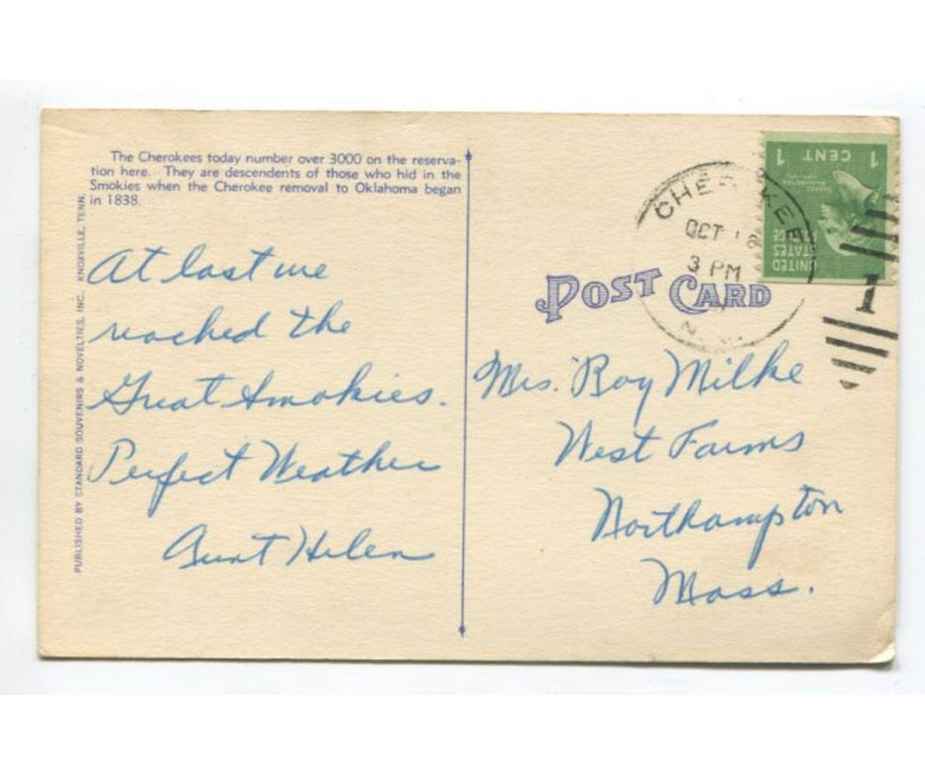 The Cherokees today number over 3000 on the reserva-
tion here. They are descendents of those who hid in the
Smokies when the Cherokee removal to Oklahoma began
in 1838.
PUBLISHED BY STANDARD SOUVENIRS & NOVELTIES, INC. KNOXVILLE, TENN.
At last we
reached the
Great Smokies.
Perfect Weather
Aunt Helen
POST CARD
CHEROKEE
OCT
3 PM
N.
1 CENT 1
UNITED
STATES
1
Mrs. Roy Milke
West Farms
Northampton
Mass.